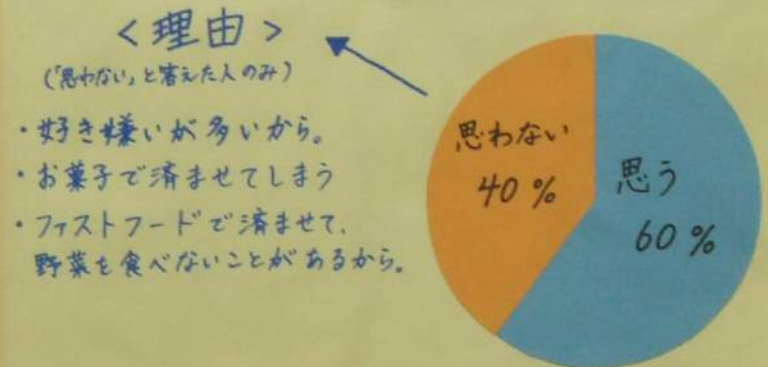 <理由>
(「思わない」と答えた人のみ)
・好き嫌いが多いから。
・お菓子で済ませてしまう
・ファストフードで済ませて、
野菜を食べないことがあるから。
思わない
40%
思う
60%